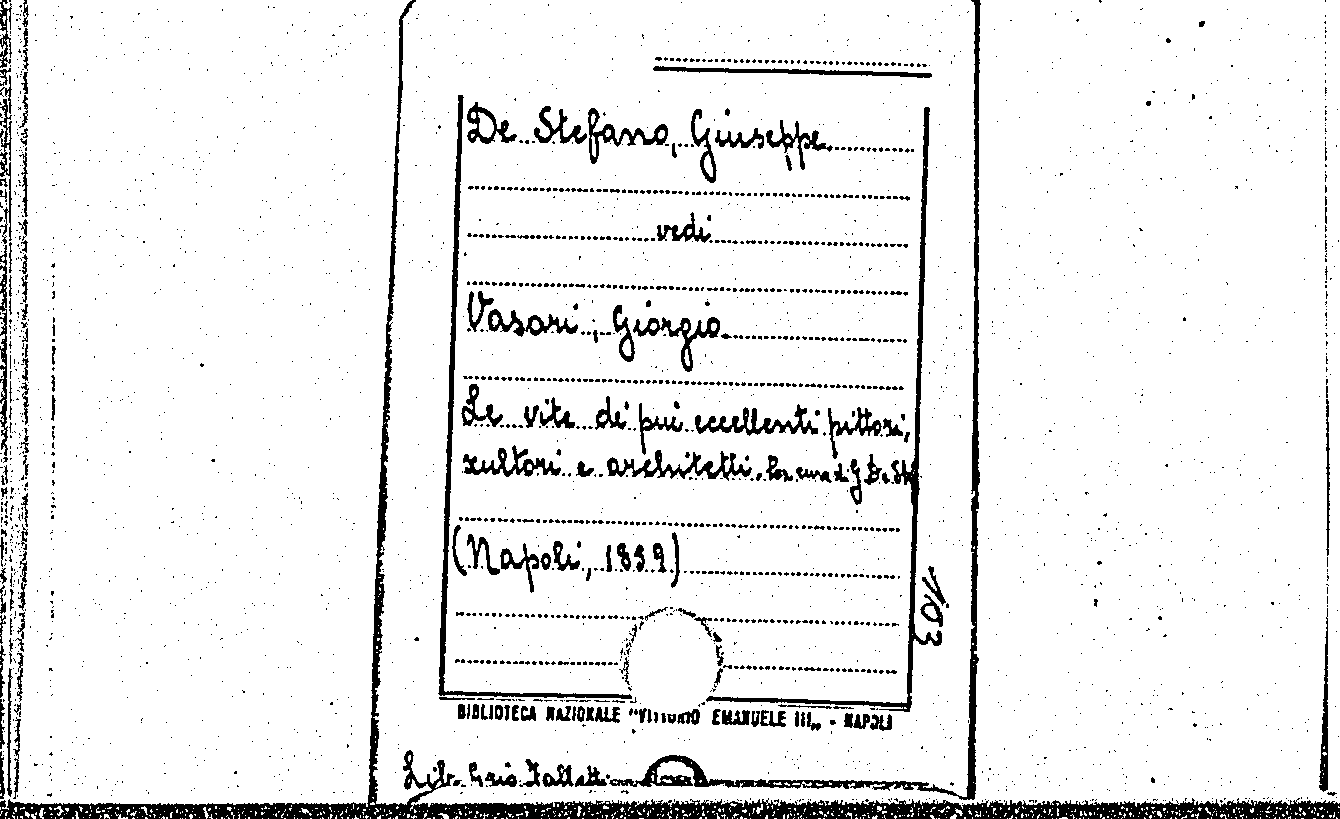 De Stefano, Giuseppe.
vedi
Vasari, Giorgio.
Le vite dei piú eccellenti pittori,
scultori e architetti. Per cura di G. De Stef
(Napoli, 1859)
103
BIBLIOTECA NAZIONALE "VITTORIO EMANUELE III„ - NAPOLI
Lib.